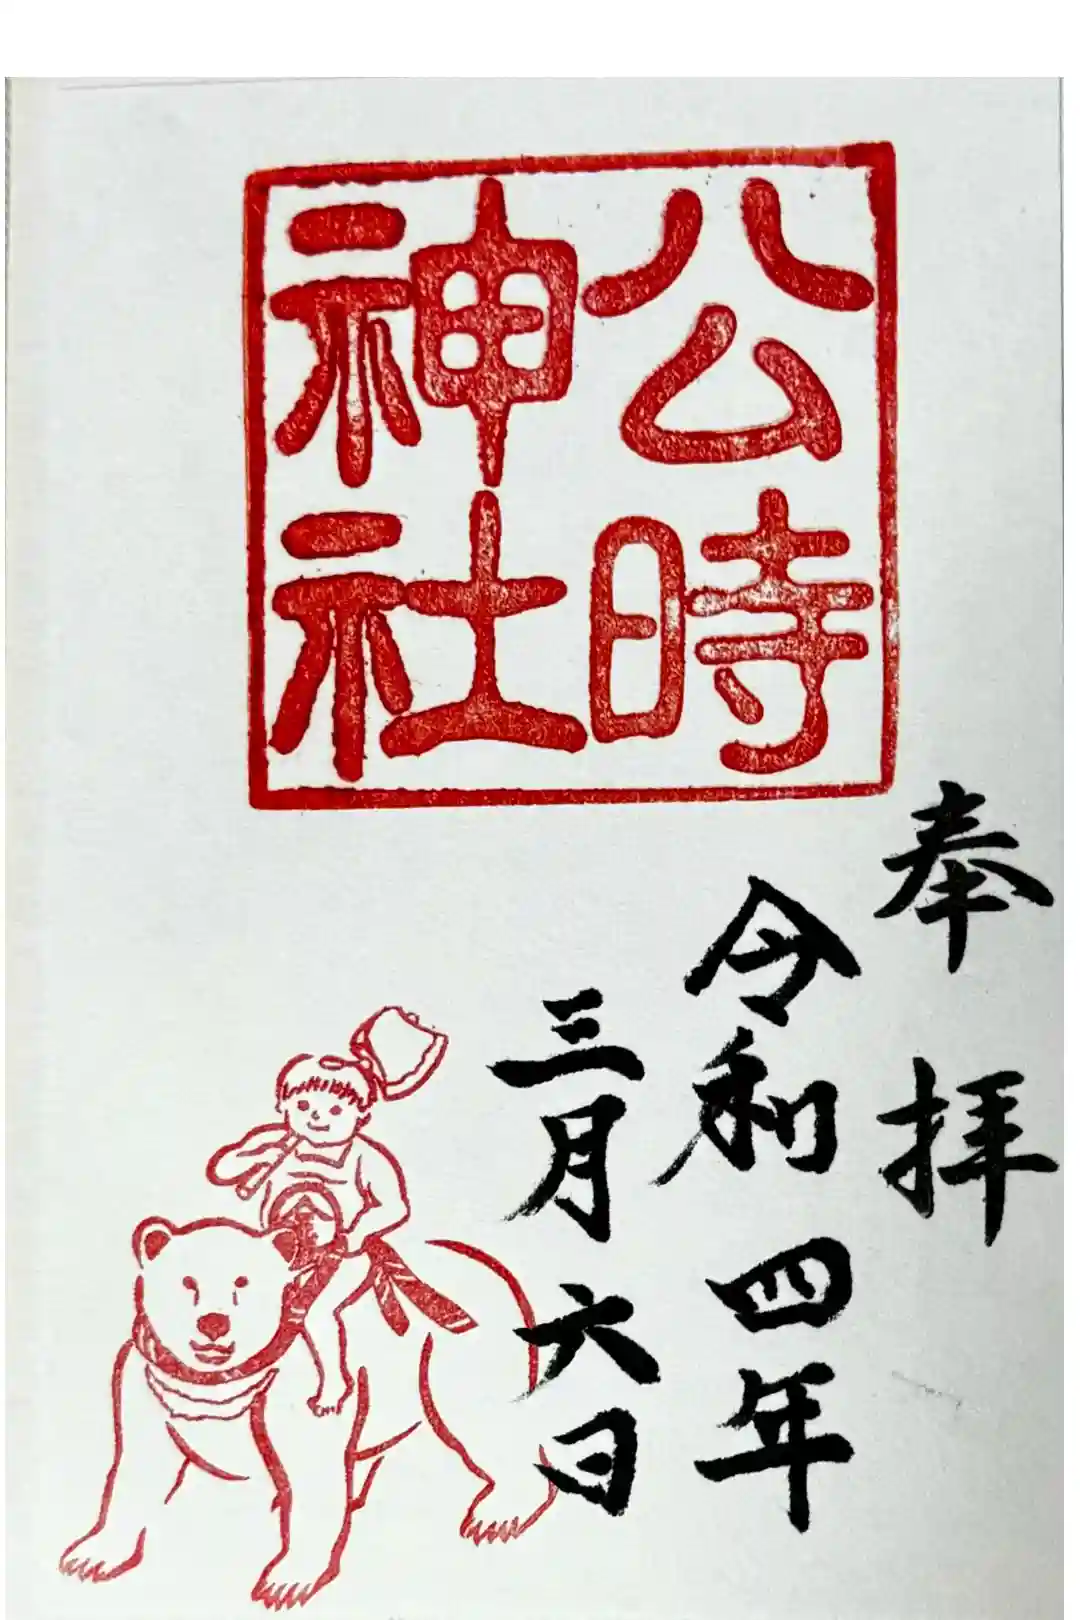 公時
神社
奉拝
令和四年
三月六日
金